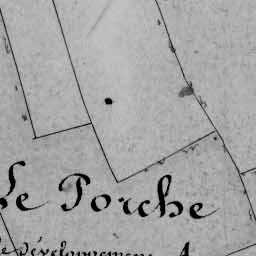 Le Porche
Développement A